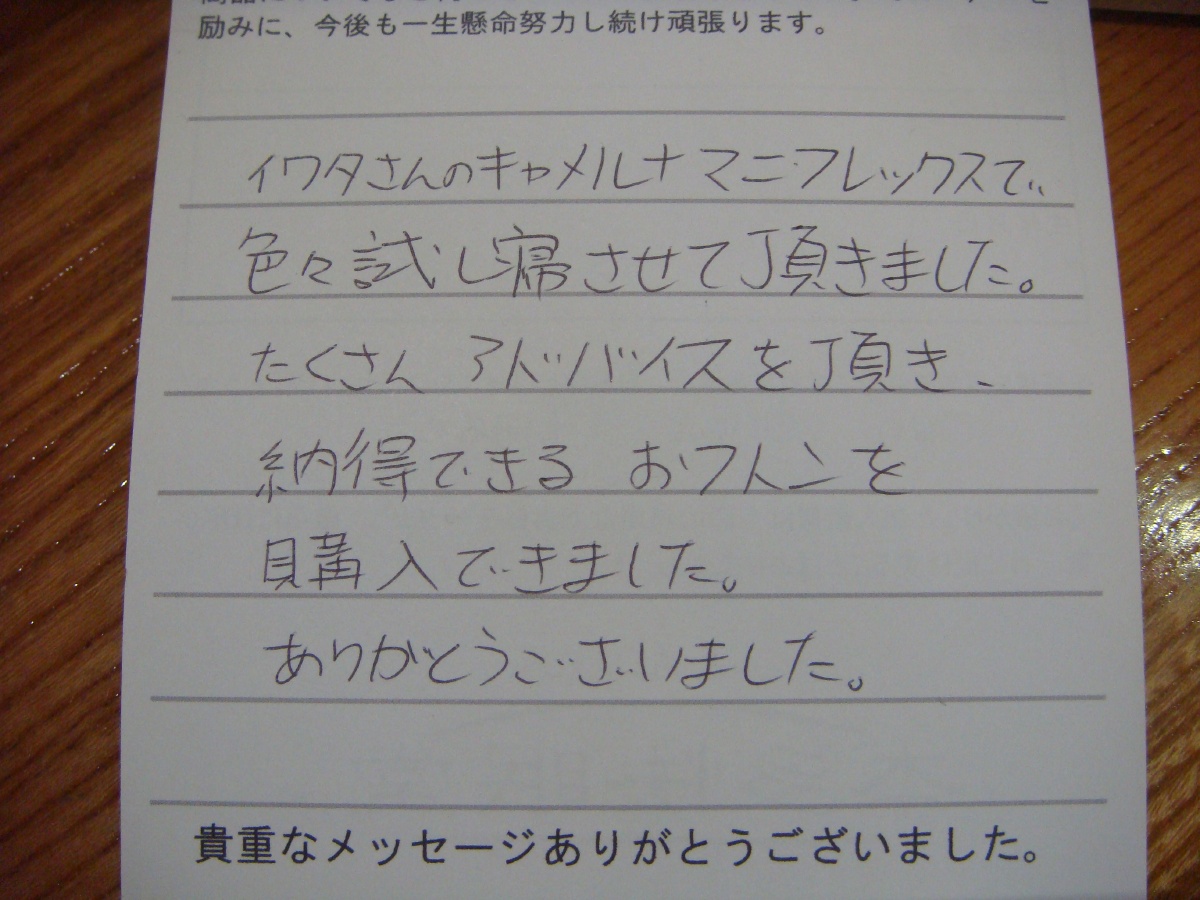 励みに、今後も一生懸命努力し続け頑張ります。
イワタさんのキャメルナマニフレックスで、
色々試し寝させて頂きました。
たくさん アドバイスを頂き、
納得できる おフトンを
購入できました。
ありがとうございました。
貴重なメッセージありがとうございました。